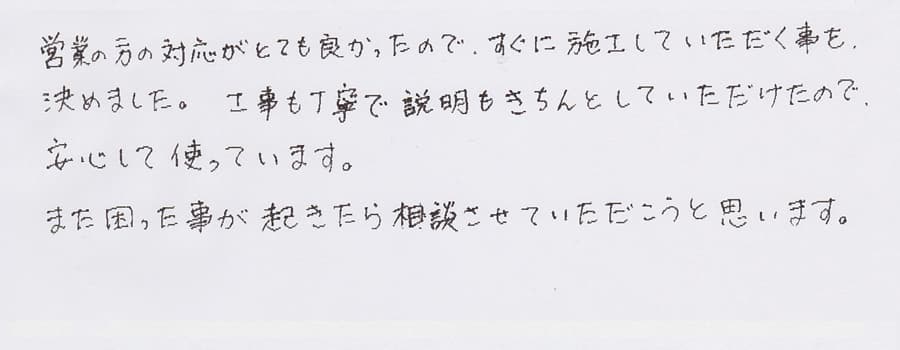 営業の方の対応がとても良かったので、すぐに施工していただく事を、
決めました。 工事も丁寧で説明もきちんとしていただけたので、
安心して使っています。
また困った事が起きたら相談させていただこうと思います。